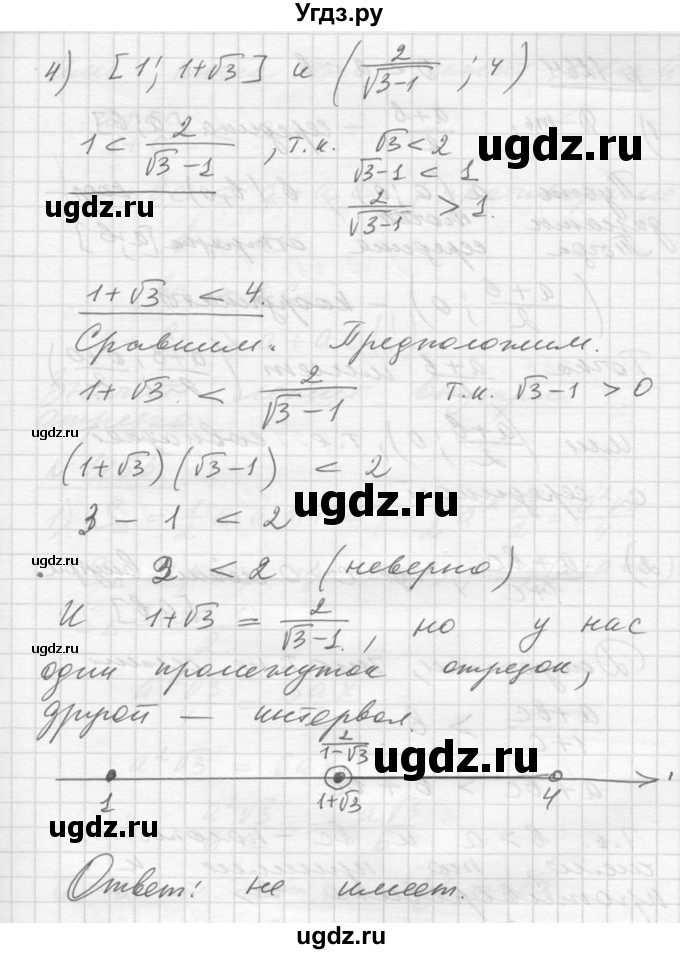 Угдз.ру
4) [1; 1+√3] и (2/(√3-1); 4)
1 < 2/(√3-1), т.к. √3<2
√3-1 < 1
2/(√3-1) > 1.
ugdz.ru
ugdz.ru
1+√3 < 4.
Сравним. Предположим.
1+√3 < 2/(√3-1) т.к. √3-1 > 0
ugdz.ru
(1+√3)(√3-1) < 2
ugdz.ru
3 - 1 < 2
ugdz.ru
2 < 2 (неверно)
И 1+√3 = 2/(√3-1), но у нас
один промежуток отрезок,
другой — интервал.
2/(1-√3)
ugdz.ru
1 1+√3 4
ugdz.ru
Ответ: не имеет.
ugdz.ru